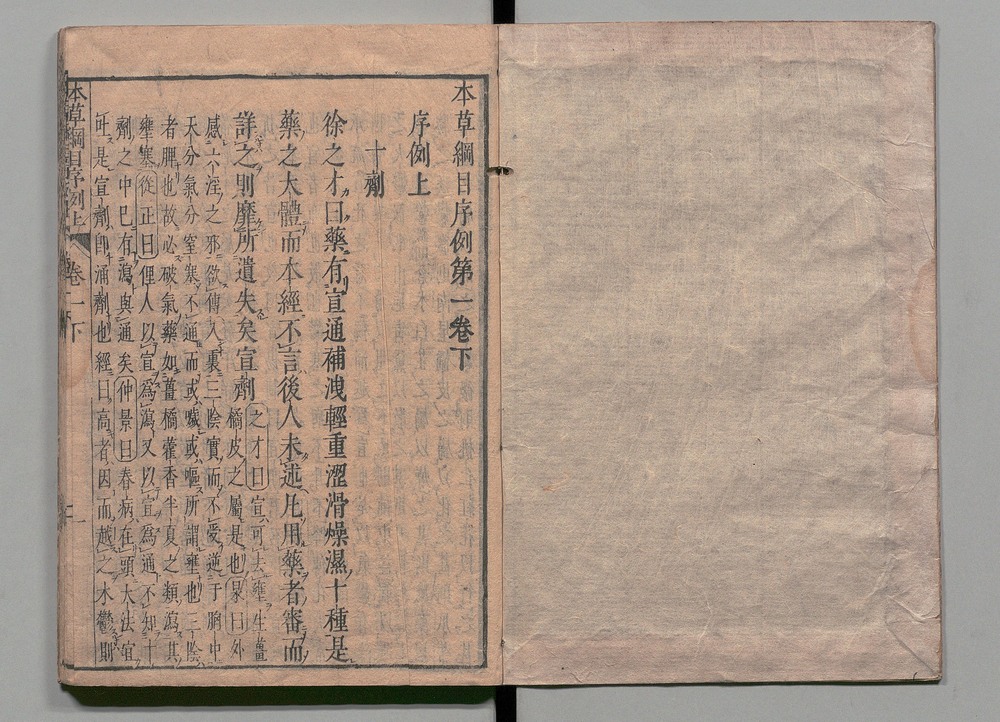 本草綱目序例第一卷下
序例上
十劑
徐之才曰藥有宣通補洩輕重澀滑燥濕十種是
藥之大體而本經不言後人未述凡用藥者審而
詳之則靡所遺失矣宣劑
之才曰宣可去壅生薑
橘皮之屬是也杲曰外
感六淫之邪欲傳入裏三陰實而不受逆于胸中
天分氣分窒塞不通而或噦或嘔所謂壅也三陰
者脾也故必破氣藥如薑橘藿香半夏之類瀉其
壅塞從正曰俚人以宣為瀉又以宣為通不知十
劑之中已有瀉與通矣仲景曰春病在頭大法宜
吐是宣劑即涌劑也經曰高者因而越之木鬱則
本草綱目序例上 卷一下